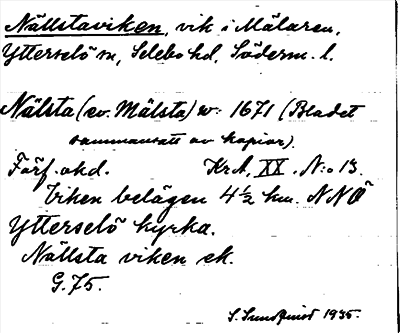 Nällstaviken, vik i Mälaren,
Ytterselö sn, Selebo hd, Söderm. l.
Nälsta (ev. Mälsta) w: 1671 (Bladet
sammansatt av kopior).
Förf. okd. KrA, XX. N:o 13.
Viken belägen 4½ km. NNÖ
Ytterselö kyrka.
Nällsta viken ek.
G. 75.
S. Sundqvist 1935.